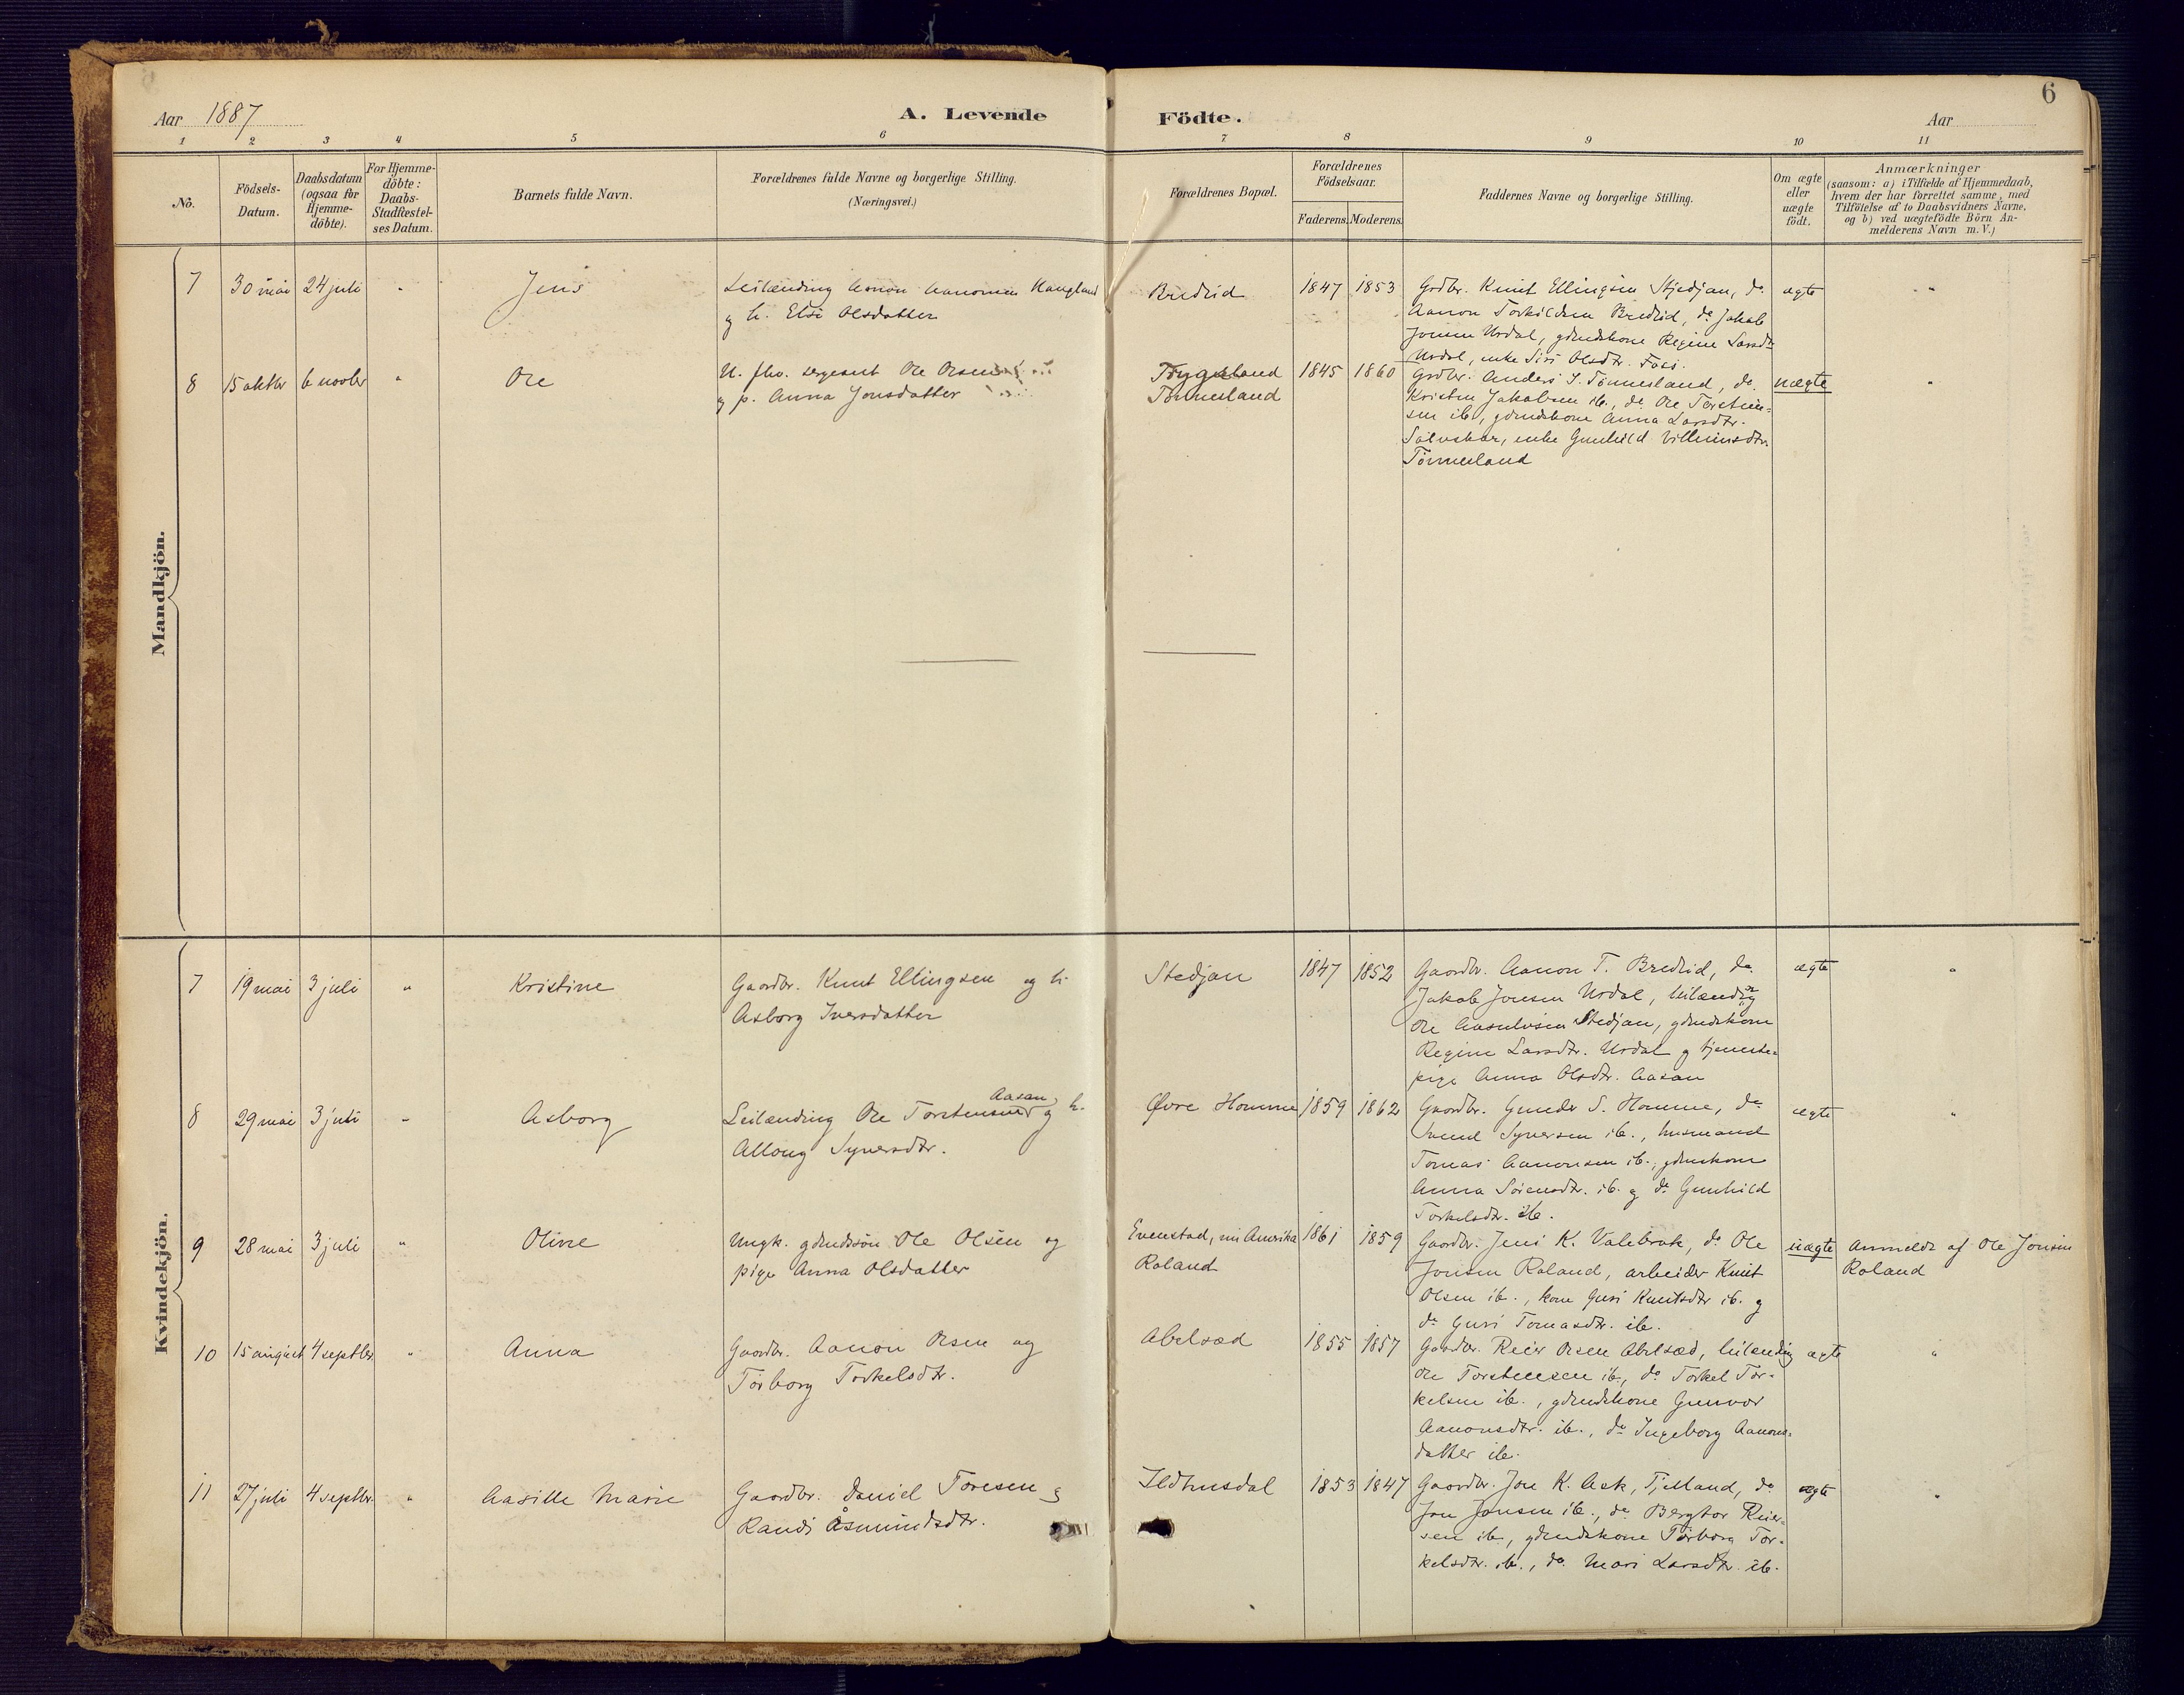 6
Aar 1887
A. Levende
Födte.
Aar
1 2 3 4 5 6 7 8 9 10 11
No.
Födsels-
Datum.
Daabsdatum
(ogsaa for
Hjemme-
döbte).
For Hjemme-
döbte:
Daabs-
Stadfæstel-
ses Datum.
Barnets fulde Navn.
Forældrenes fulde Navne og borgerlige Stilling.
(Næringsvei.)
Forældrenes Bopæl.
Forældrenes
Födselsaar.
Faderens. Moderens.
Faddernes Navne og borgerlige Stilling.
Om ægte
eller
uægte
födt.
Anmærkninger
(saasom: a) i Tilfælde af Hjemmedaab,
hvem der har forrettet samme, med
Tilföielse af to Daabsvidners Navne,
og b) ved uegtefödte Börn An-
melderens Navn m. V.)
Mandkjön.
7 30 mai 24 juli " Jens
Leilænding Aanon Aanonsen Haugland
g h. Elsi Olsdatter
Bredlid
1847 1853
Grdbr. Knut Ellingsen Stjedjan, do
Aanon Torkildsen Bredlid, do Jakob
Jonsen Urdal, gdmdskone Regine Larsdtr
Urdal, enke Siri Olsdtr. Fosi.
ægte "
8 15 oktbr 6 novbr " Ole
U. fhv. sergeant Ole Olsen
g p. Anna Jonsdatter
Tryggeland
Tönnesland
1845 1860
Grdbr. Anders S. Tönnesland, do
Kristen Jakobsen ib., do Ole Torstein=
sen ib., gdmdskone Anna Larsdtr.
enke Gunhild Villumsdtr.
Tönnesland
uægte "
Kvindekjön.
7 19 mai 3 juli " Kristine
Gaardbr. Knut Ellingsen og h.
Asborg Iversdatter
Stedjan
1847 1852
Gaardbr. Aanon T. Bredlid, do
Jakob Jonsen Urdal, leilænding
Ole Aasulvsen Stedjan, gdmdskone
Regine Larsdtr. Urdal g tjeneste=
pige Anna Olsdtr. Aasan
ægte "
8 29 mai 3 juli " Asborg
Leilænding Ole Torstensen Aasan g h.
Alloug Synersdtr.
Øvre Homme
1859 1862
Gaardbr. Gunder S. Homme, do
Svend Syversen ib., husmand
Tomas Aanonsen ib., gdmskone
Anna Sörensdtr. ib. g do Gunhild
Torkelsdtr. ib.
ægte "
9 28 mai 3 juli " Oline
Ungk. gdmdssön Ole Olsen og
pige Anna Olsdatter
Evenstad, nu Amerika
Roland
1861 1859
Gaardbr. Jens K. Valebrok, do Ole
Jonsen Roland, arbeider Knut
Olsen ib., kone Guri Knutsdtr ib. g
do Guri Tomasdtr. ib.
uægte
Anmeldt af Ole Jonsen
Roland
10 15 august 4 septbr. " Anna
Gaardbr. Aanon Olsen og
Törborg Torkelsdtr.
Abelsæd
1855 1857
Gaardbr. Reier Olsen Abelsæd, leilænding
Ole Torstensen ib., do Torkel Tor-
kelsen ib., gdmdskone Gunvor
Aanonsdtr. ib., do Ingeborg Aanons=
datter ib.
ægte "
11 27 juli 4 septbr. " Aasille Marie
Gaardbr. Daniel Toresen g
Randi Åsmundsdtr.
Ildhusdal
1853 1847
Gaardbr. Jon K. Ask, Tjelland, do
Jon Jonsen ib., do Bergtor Reier=
sen ib., gdmdskone Törborg Tor-
kelsdtr. ib., do Mari Larsdtr. ib.
ægte "